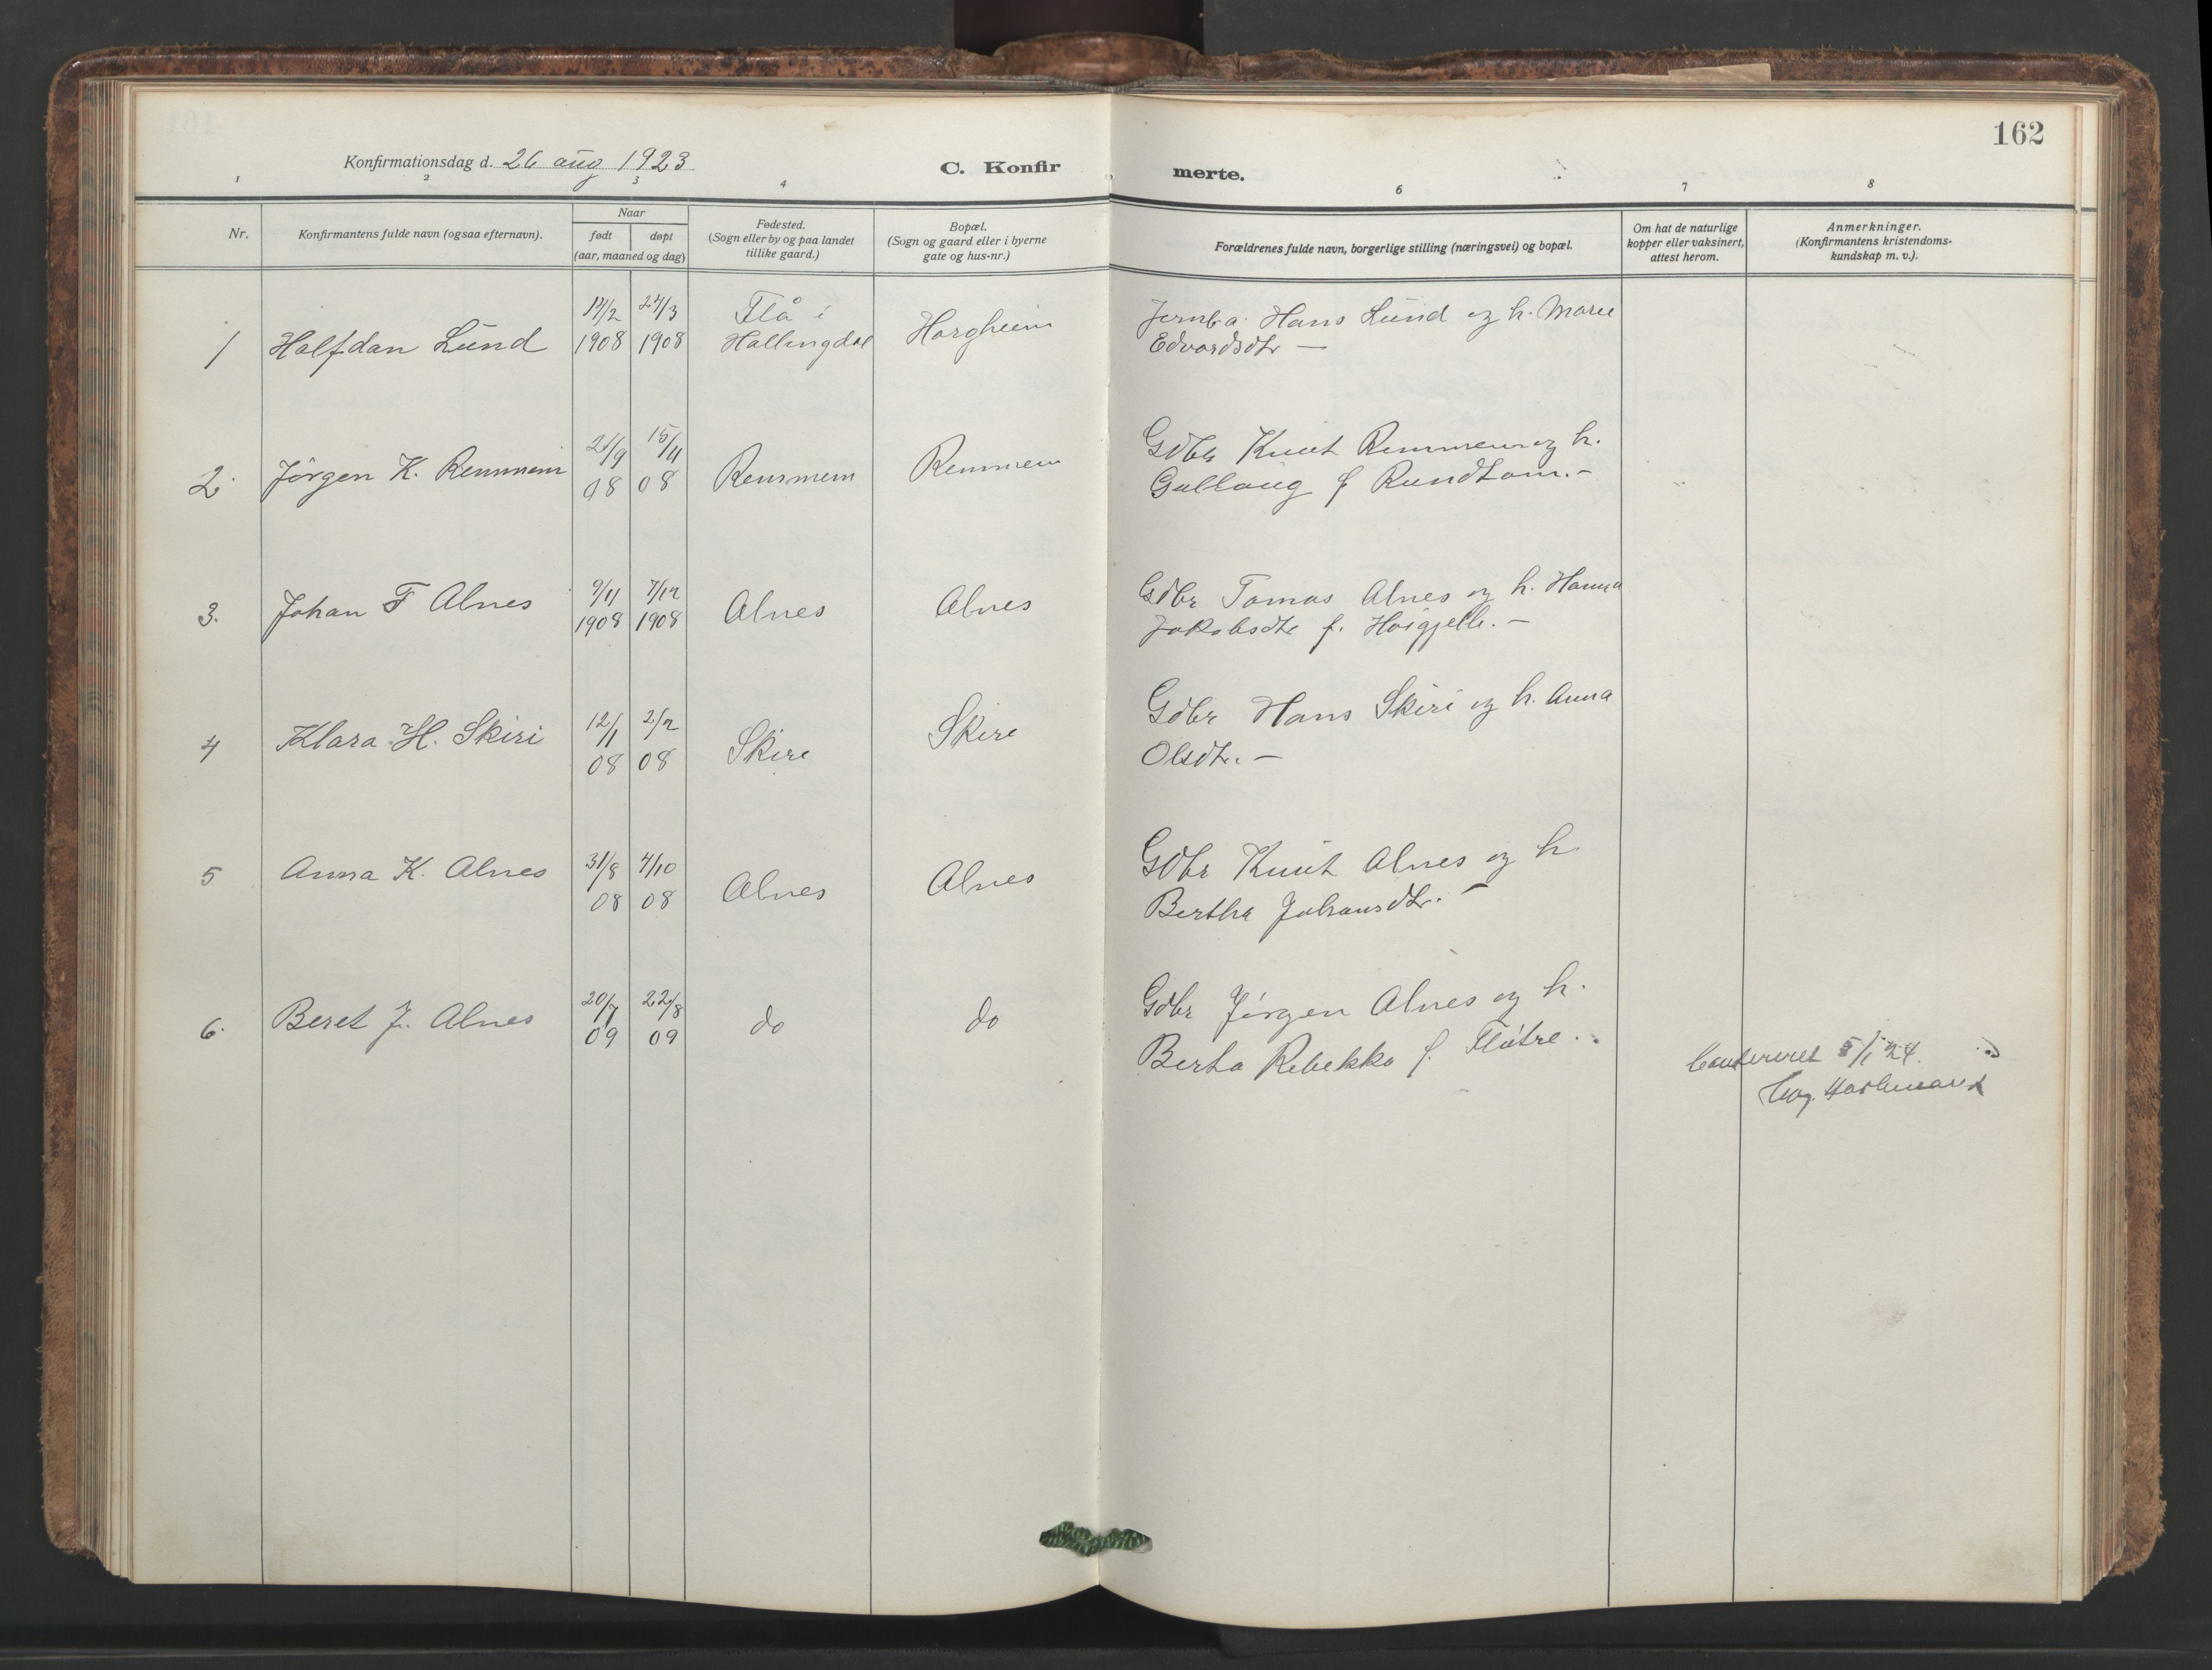 162
Konfirmationsdag d. 26 aug 1923
C. Konfirmerte.
1 2 3 4 6 7 8
Nr.
Konfirmantens fulde navn (ogsaa efternavn).
Naar
født døpt
(aar, maaned og dag)
Fødested.
(Sogn eller by og paa landet
tillike gaard.)
Bopæl.
(Sogn og gaard eller i byerne
gate og hus-nr.)
Forældrenes fulde navn, borgerlige stilling (næringsvei) og bopæl.
Om hat de naturlige
kopper eller vaksinert,
attest herom.
Anmerkninger.
(Konfirmantens kristendoms-
kundskap m. v.).
1
Halfdan Lund
1908
1908
Flå i
Hallingdal
Horgheim
Jernb.a. Hans Lund og h. Marie
Edvardsdtr —
2.
Jörgen K. Remmem
21/9
08
15/11
08
Remmem
Remmem
Gdbr Knut Remmem og h.
Gullaug f Rundtom. —
3.
Johan F Alnes
9/11
1908
7/12
1908
Alnes
Alnes
Gdbr Tomas Alnes og h. Hanna
Jakobsdtr f. —
4
Klara H. Skiri
12/1
08
2/2
08
Skire
Skire
Gdbr Hans Skiri og h. Anna
Olsdtr. —
5
Anna K. Alnes
31/8
08
4/10
08
Alnes
Alnes
Gdbr Knut Alnes og h
Bertha Johansdtr. —
6.
Beret J. Alnes
20/7
09
22/8
09
do
do
Gdbr Jörgen Alnes og h.
Berta Rebekka f.
5/1 24.